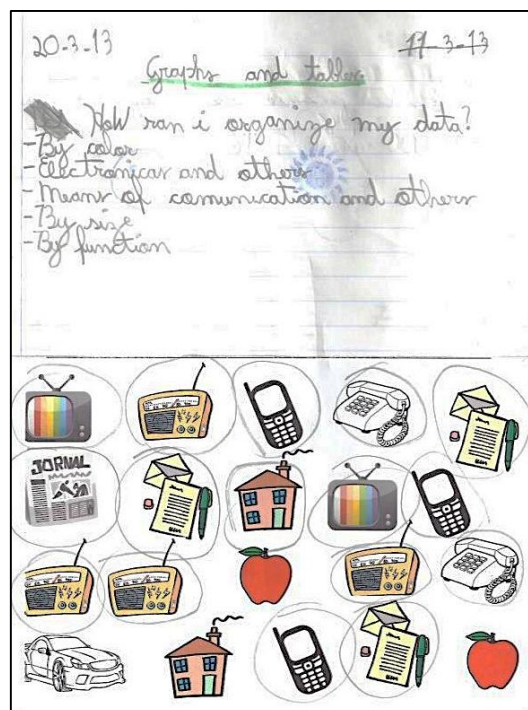 20-3-13 11-3-13
Graphs and tables
How ran i organize my data?
-By color
-Electronicas and others
-Means of comunication and others
-By size
-By function
JORNAL